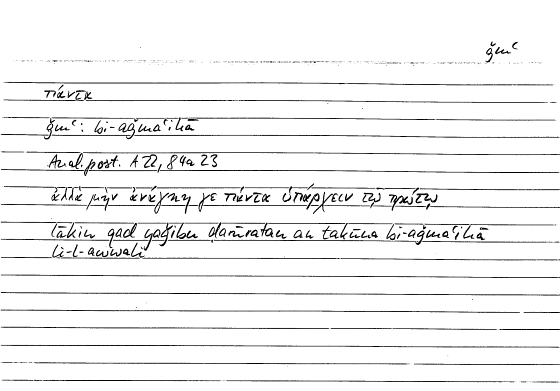 ǧmʿ
πάντα
ǧmʿ: bi-aǧmaʿihā
Anal. post. A 22, 84a 23
ἀλλὰ μὴν ἀνάγκη γε πάντα ὑπάρχειν τῷ πρώτῳ
lākin qad yaǧibu ḍarūratan an takūna bi-aǧmaʿihā
li-l-awwali